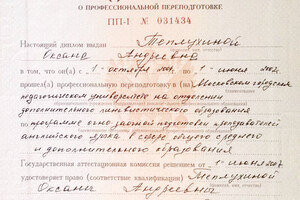 О ПРОФЕССИОНАЛЬНОЙ ПЕРЕПОДГОТОВКЕ
ПП-I № 031434
Настоящий диплом выдан Теплухиной
Оксане Андреевне
в том, что он(а) с 1 октября по 1 июня
прошел(а) профессиональную переподготовку в (на) Московском городском
педагогическом университете на отделении
дополнительного лингвистического образования
по программе очно-заочной подготовки преподавателей
английского языка в сфере общего среднего
и дополнительного образования
Государственная аттестационная комиссия решением от 1 июня
удостоверяет право (соответствие квалификации) Теплухиной
Оксаны Андреевны